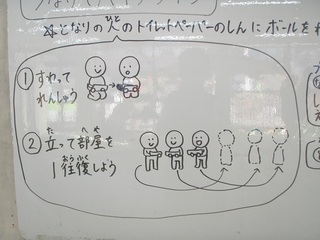 ※となりの人のトイレットペーパーのしんにボールを
ひと
① すわって
れんしゅう
② 立って部屋を
た へや
1往復しよう
おうふく